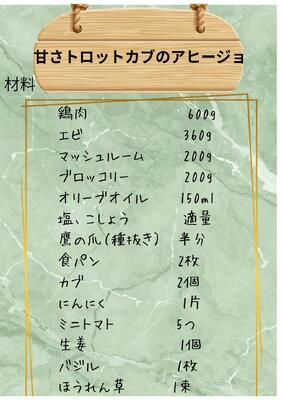 甘さトロットカブのアヒージョ
材料
鶏肉 600g
エビ 360g
マッシュルーム 200g
ブロッコリー 200g
オリーブオイル 150ml
塩、こしょう 適量
鷹の爪(種抜き) 半分
食パン 2枚
カブ 2個
にんにく 1片
ミニトマト 5つ
生姜 1個
バジル 1枚
ほうれん草 1束